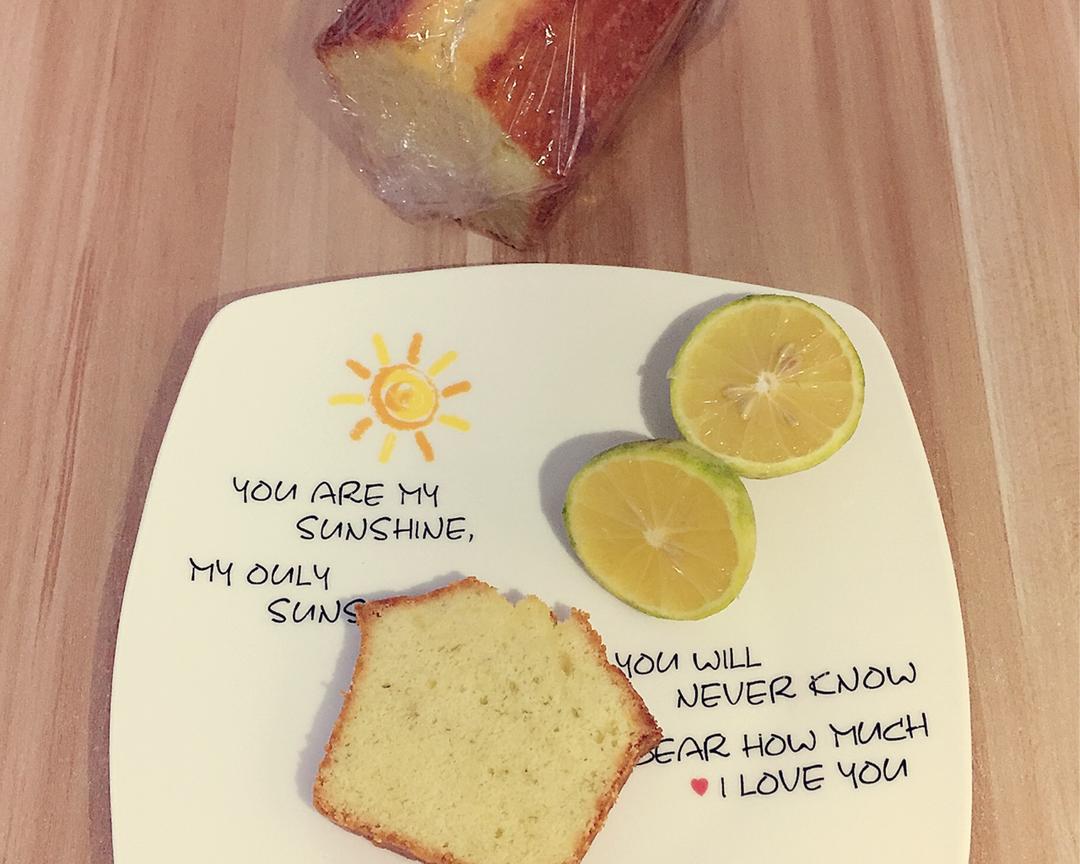 YOU ARE MY
SUNSHINE,
MY OULY
SUNS
YOU WILL
NEVER KNOW
EAR HOW MUCH
I LOVE YOU